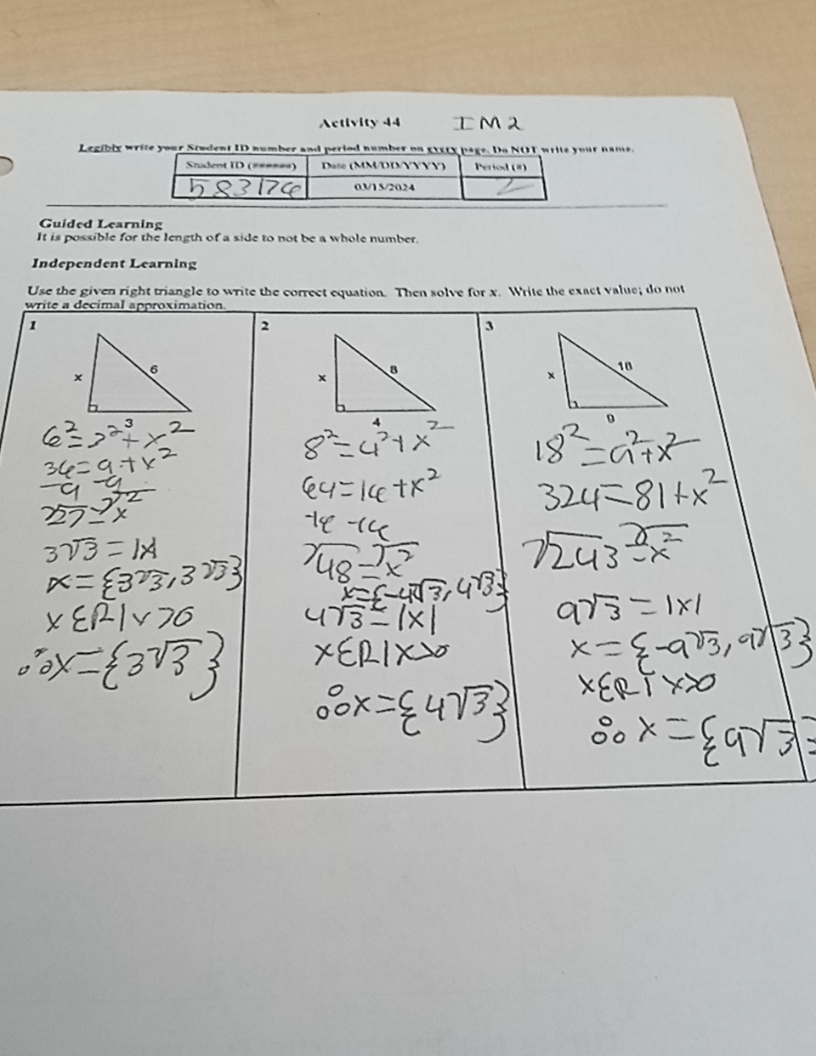 Activity 44 IM2
Legibly write your Student ID number and period number on every page. Do NOT write your name.
Student ID (######) Date (MM/DD/YYYY) Period (#)
583176 03/15/2024 2
Guided Learning
It is possible for the length of a side to not be a whole number.
Independent Learning
Use the given right triangle to write the correct equation. Then solve for x. Write the exact value; do not
write a decimal approximation.
1
x
6
3
6²=3²+x²
36=9+x²
-9 -9
√27=√x²
3√3=|x|
x={-3√3,3√3}
∴x={3√3}
2
x
8
4
8²=4²+x²
64=16+x²
-16 -16
√48=√x²
4√3=|x|
x={-4√3,4√3}
∴x={4√3}
3
x
18
9
18²=9²+x²
324=81+x²
√243=√x²
9√3=|x|
x={-9√3,9√3}
∴x={9√3}